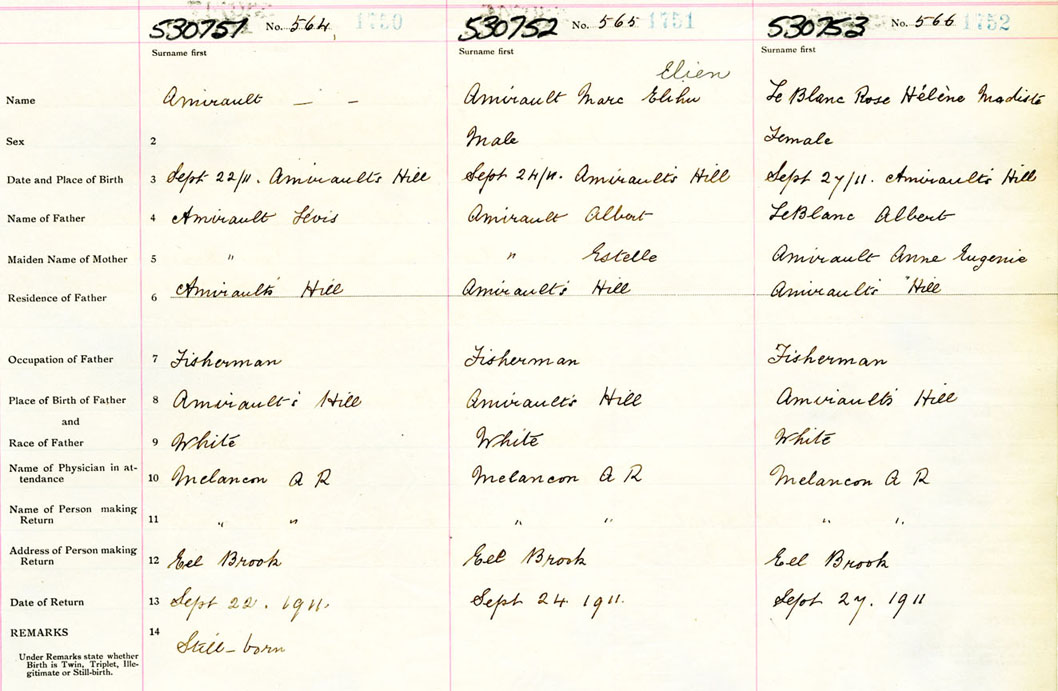 530751 No. 564 1750 530752 No. 565 1751 530753 No. 566 1752
Surname first Surname first Surname first
Elien
Name Amirault — - Amirault Marc Elihu Le Blanc Rose Hélène Modiste
Sex 2 Male Female
Date and Place of Birth 3 Sept 22/11. Amirault's Hill Sept 24/11. Amirault's Hill Sept 27/11. Amirault's Hill
Name of Father 4 Amirault Lévis Amirault Albert LeBlanc Albert
Maiden Name of Mother 5 " " Estelle Amirault Anne Eugenie
Residence of Father 6 Amirault's Hill Amirault's Hill Amirault's Hill
Occupation of Father 7 Fisherman Fisherman Fisherman
Place of Birth of Father 8 Amirault's Hill Amirault's Hill Amirault's Hill
and
Race of Father 9 White White White
Name of Physician in at-
tendance 10 Melancon A R Melancon A R Melancon A R
Name of Person making
Return 11 " " " " " "
Address of Person making
Return 12 Eel Brook Eel Brook Eel Brook
Date of Return 13 Sept 22. 1911. Sept 24 1911. Sept 27. 1911
REMARKS 14 Still-born
Under Remarks state whether
Birth is Twin, Triplet, Ille-
gitimate or Still-birth.